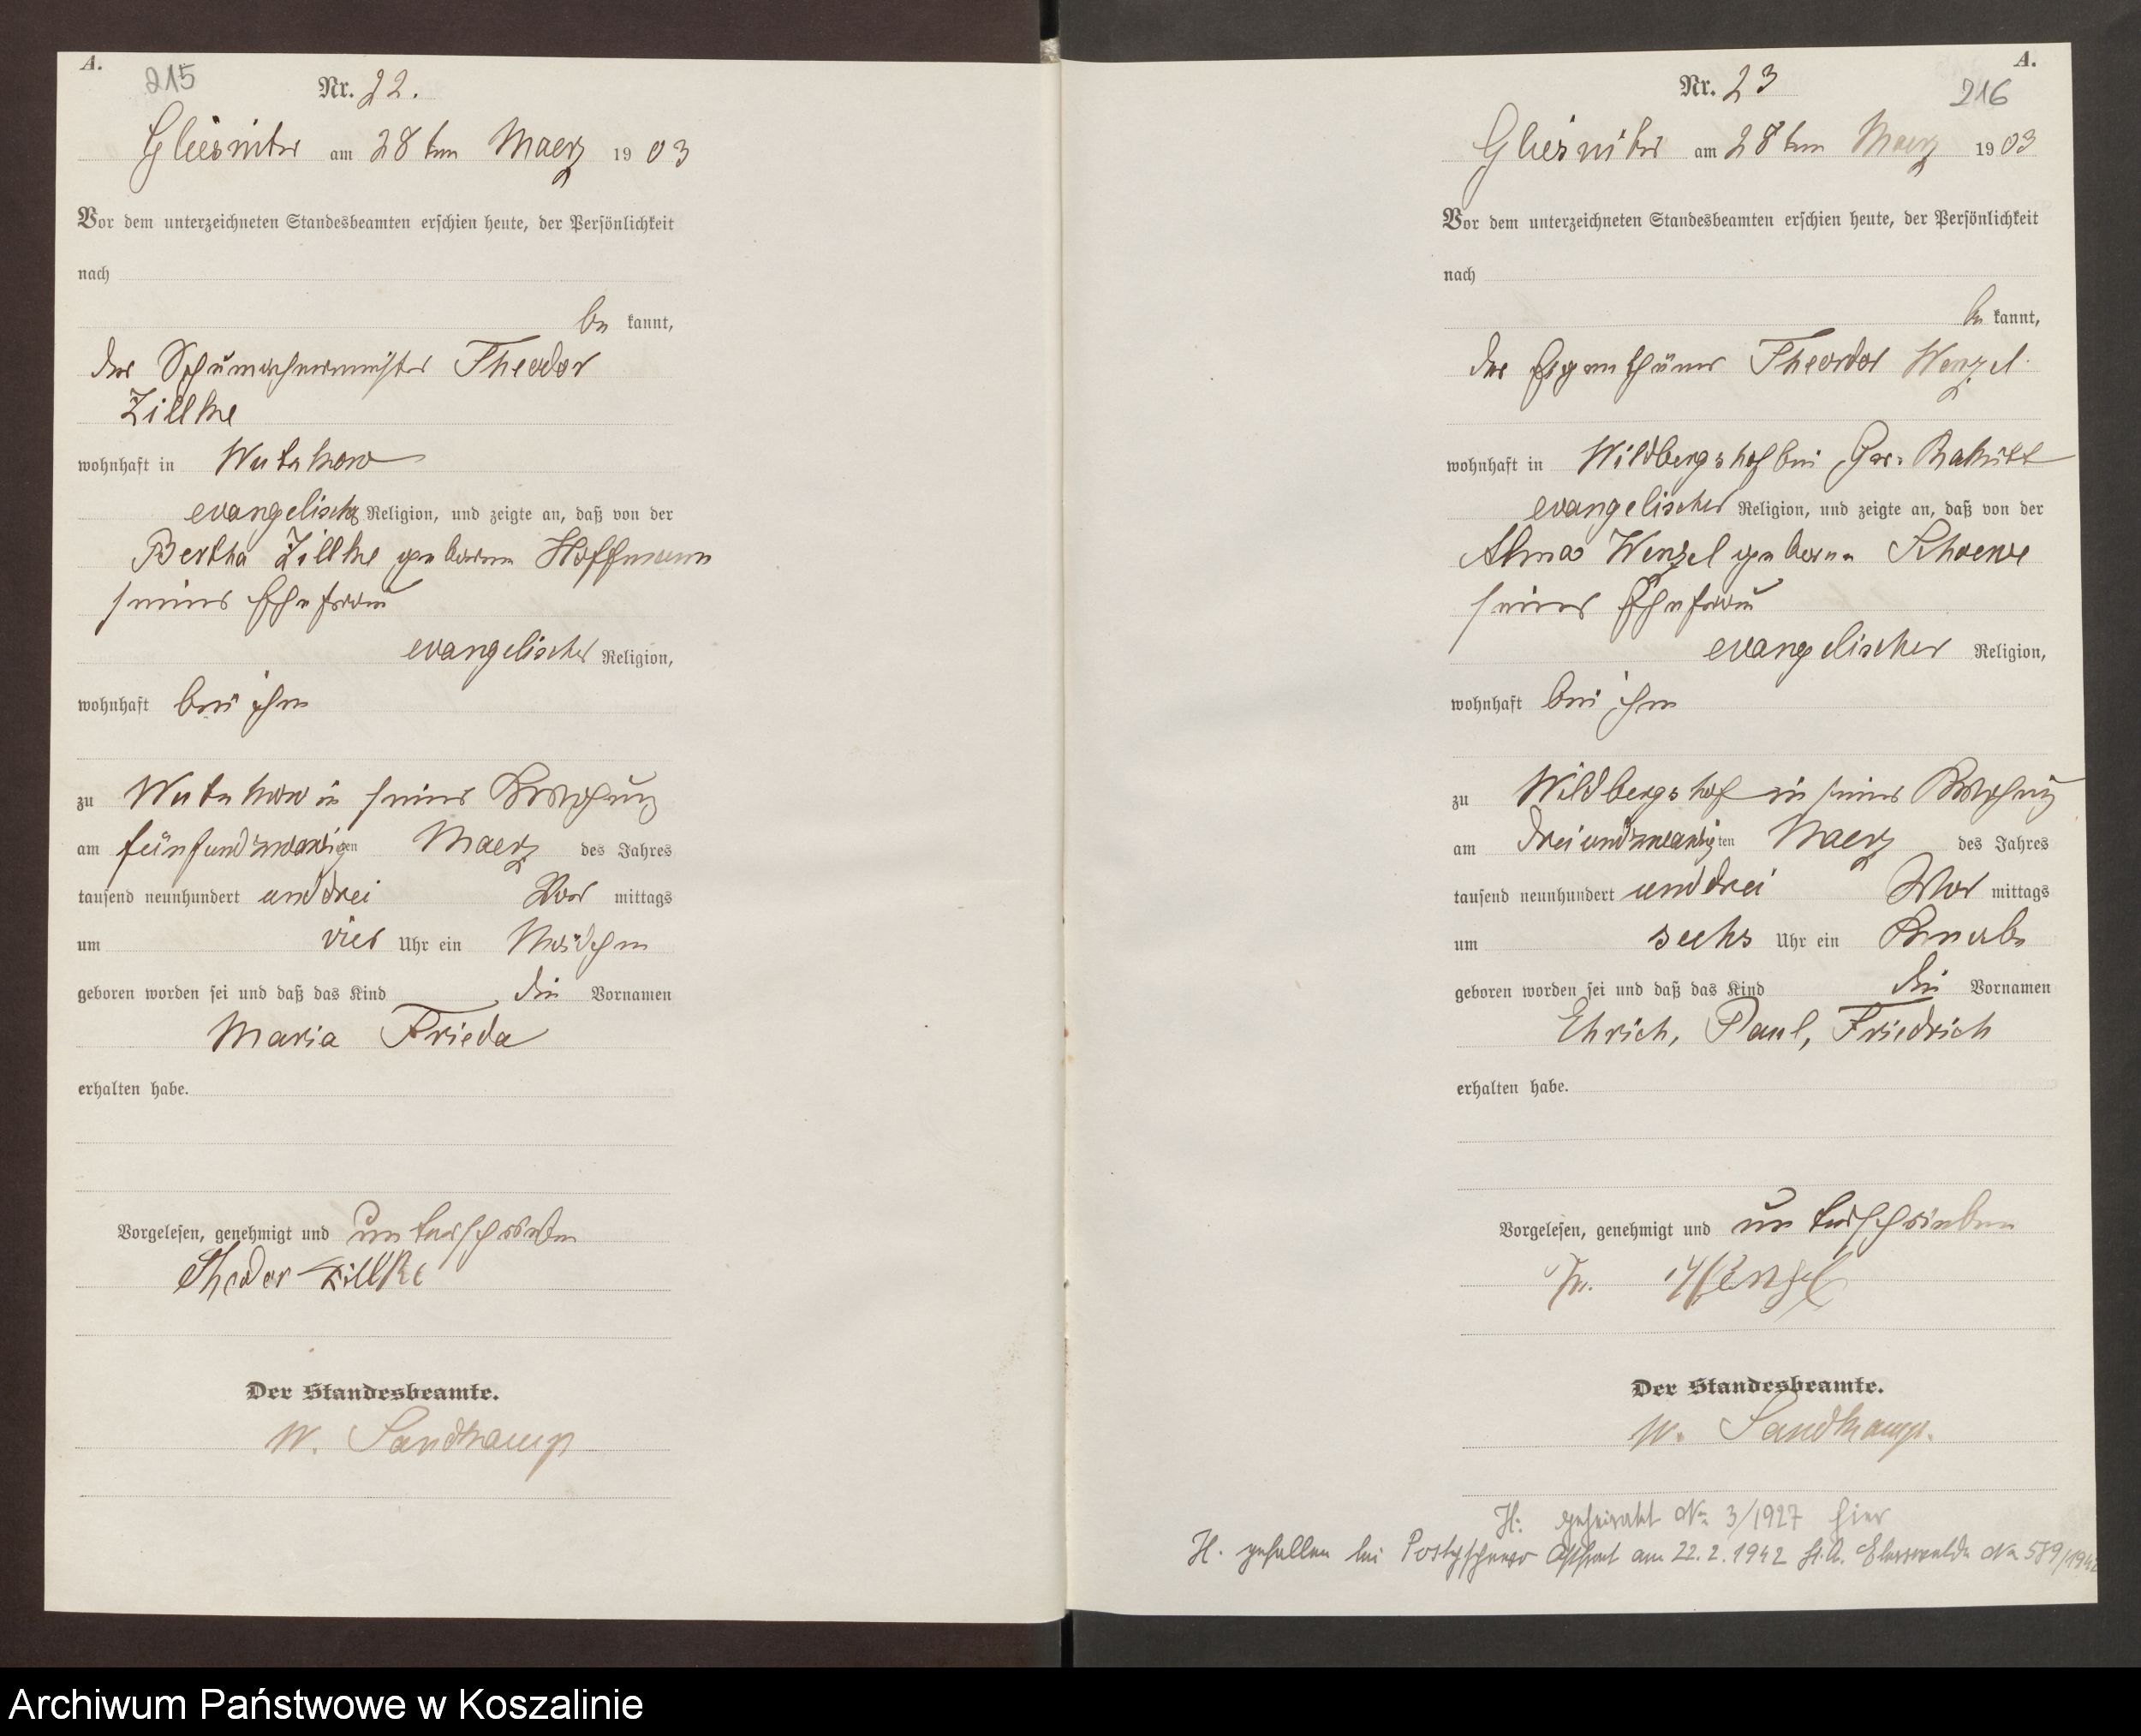 A.
215
Nr. 22.
Gliesnitz am 28ten Maerz 1903
Vor dem unterzeichneten Standesbeamten erschien heute, der Persönlichkeit
nach
be kannt,
der Schumachermeister Theodor
Zillke
wohnhaft in Wutzkow
evangelischer Religion, und zeigte an, daß von der
Bertha Zillke geborne Hoffmann
seiner Ehefrau
evangelischer Religion,
wohnhaft bei ihm
zu Wutzkow in seiner Wohnung
am fünfundzwanzigen Maerz des Jahres
tausend neunhundert und drei Vor mittags
um vier Uhr ein Mädchen
geboren worden sei und daß das Kind die Vornamen
Maria Frieda
erhalten habe.
Vorgelesen, genehmigt und unterschrieben
Theodor Zillke
Der Standesbeamte.
W. Sandkamp
A.
216
Nr. 23
Gliesnitz am 28ten Maerz 1903
Vor dem unterzeichneten Standesbeamten erschien heute, der Persönlichkeit
nach
be kannt,
der Eigenthümer Theodor Wenzel
wohnhaft in Wildbergshof bei Gr. Rakitt
evangelischer Religion, und zeigte an, daß von der
Alma Wenzel geborne
seiner Ehefrau
evangelischer Religion,
wohnhaft bei ihm
zu Wildbergshof in seiner Wohnung
am dreiundzwanzigten Maerz des Jahres
tausend neunhundert und drei Vor mittags
um sechs Uhr ein Knabe
geboren worden sei und daß das Kind die Vornamen
Ehrich, Paul, Friedrich
erhalten habe.
Vorgelesen, genehmigt und unterschrieben
Th. Wenzel
Der Standesbeamte.
W. Sandkamp.
H: geheiratet No 3/1927 hier
H. gefallen bei am 22.2.1942 St.A. No 589/1942
Archiwum Państwowe w Koszalinie